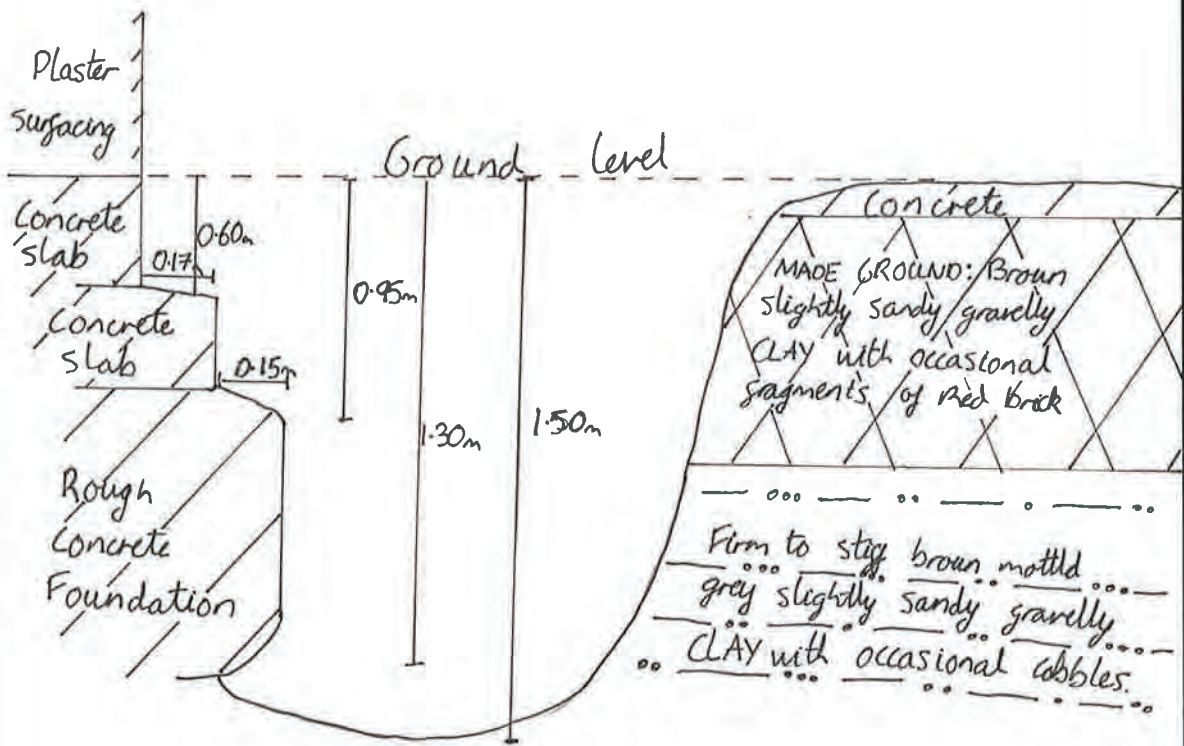 Plaster
surfacing
Ground level
Concrete
slab
0.60m
0.17
Concrete
slab
0.15m
0.95m
1.30m
1.50m
Rough
Concrete
Foundation
Concrete
MADE GROUND: Brown
slightly sandy gravelly
CLAY with occasional
fragments of Red brick
Firm to stiff brown mottld
grey slightly sandy gravelly
CLAY with occasional cobbles.